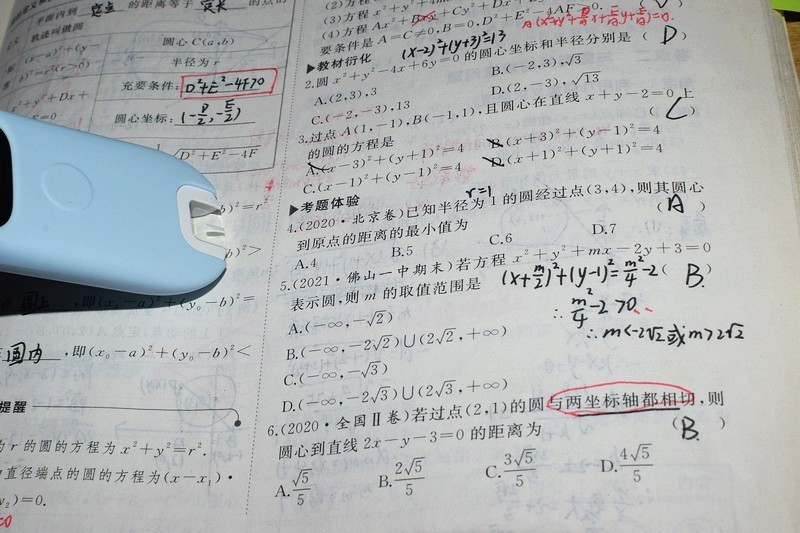 平面内到 定点 的距离等于 定长 的点的
轨迹叫做圆
圆心 C(a,b)
半径为 r
充要条件: D²+E²-4F>0
圆心坐标: (-D/2, -E/2)
√D²+E²-4F
b)²=r²
b)²>
圆上 ,即(x₀-a)²+(y₀-b)²=
圆内 ,即(x₀-a)²+(y₀-b)²<
提醒
r 的圆的方程为 x²+y²=r².
直径端点的圆的方程为(x-x₁)·
y₂)=0.
要条件是 A=C≠0,B=0,D²+E²-4AF>0.
▶教材衍化 (x-2)²+(y+3)²=13
2.圆 x²+y²-4x+6y=0 的圆心坐标和半径分别是 ( D )
A.(2,3),3 B.(-2,3),√3
C.(-2,-3),13 D.(2,-3),√13
3.过点 A(1,-1),B(-1,1),且圆心在直线 x+y-2=0 上
的圆的方程是 ( C )
A.(x-3)²+(y+1)²=4 B.(x+3)²+(y-1)²=4
C.(x-1)²+(y-1)²=4 D.(x+1)²+(y+1)²=4
▶考题体验 r=1
4.(2020·北京卷)已知半径为 1 的圆经过点(3,4),则其圆心
到原点的距离的最小值为 ( A )
A.4 B.5 C.6 D.7
5.(2021·佛山一中期末)若方程 x²+y²+mx-2y+3=0
表示圆,则 m 的取值范围是 (x+m/2)²+(y-1)²=m²/4-2 ( B. )
∴ m²/4-2>0
A.(-∞,-√2)
∴m<-2√2或m>2√2
B.(-∞,-2√2)∪(2√2,+∞)
C.(-∞,-√3)
D.(-∞,-2√3)∪(2√3,+∞)
6.(2020·全国Ⅱ卷)若过点(2,1)的圆与两坐标轴都相切,则
圆心到直线 2x-y-3=0 的距离为 ( B. )
A.√5/5 B.2√5/5 C.3√5/5 D.4√5/5